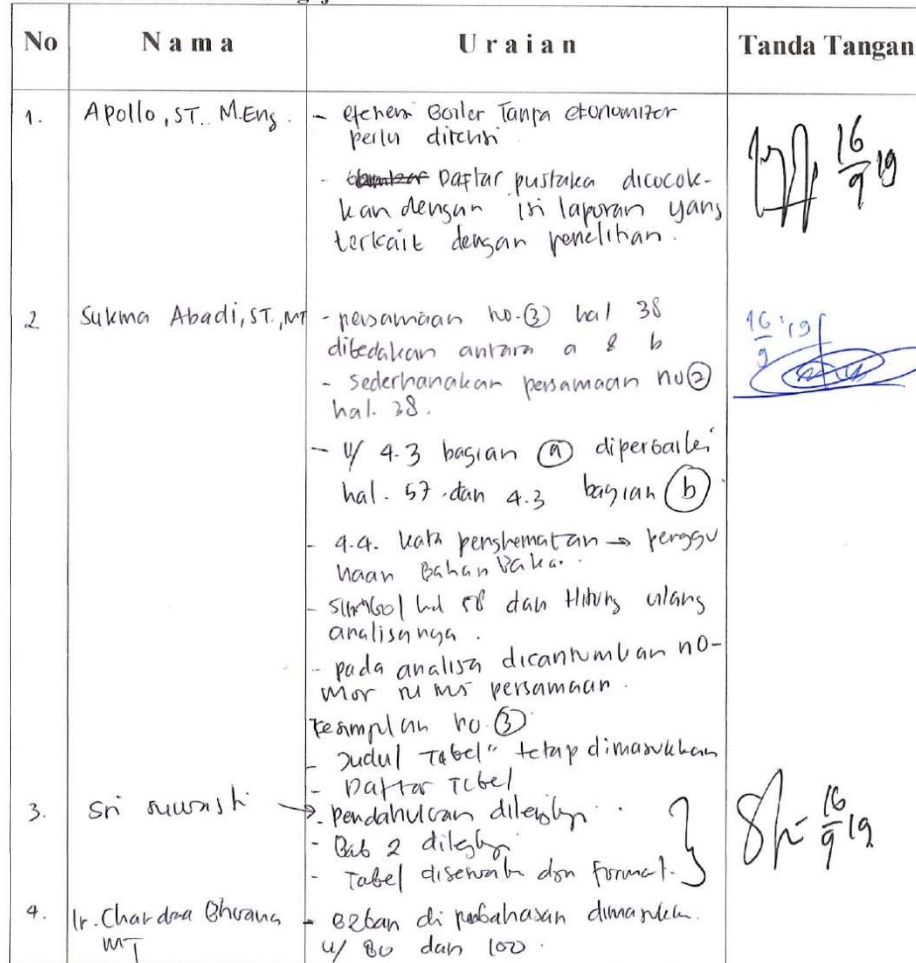 No Nama Uraian Tanda Tangan
1. Apollo, ST. M.Eng. - Boiler Tanpa ekonomizer
perlu
- Daftar pustaka dicocok-
kan dengan isi laporan yang
terkait dengan penelitian.
16/9 19
2 Sukma Abadi, ST., MT - persamaan no. ③ hal 38
dibedakan antara a & b
- sederhanakan persamaan no ②
hal. 38.
16/9 '19
- u/ 4.3 bagian ⓐ diperbaiki
hal. 57 dan 4.3 bagian ⓑ
- 4.4. kata penghematan → penggu
naan Bahan Bakar.
- simbol hal 58 dan Hitung ulang
analisanya.
- pada analisa dicantumkan no-
mor rumus persamaan.
Kesimpulan no. ③
- Judul Tabel" tetap dimasukkan
- Daftar Tabel
3. Sri → - Pendahuluan dilengkapi.
- Bab 2 dilengkapi
- Tabel format.
16/9 19
4. Ir. Chandra Bhuana
MT
- Beban di pembahasan
u/ 80 dan 100.